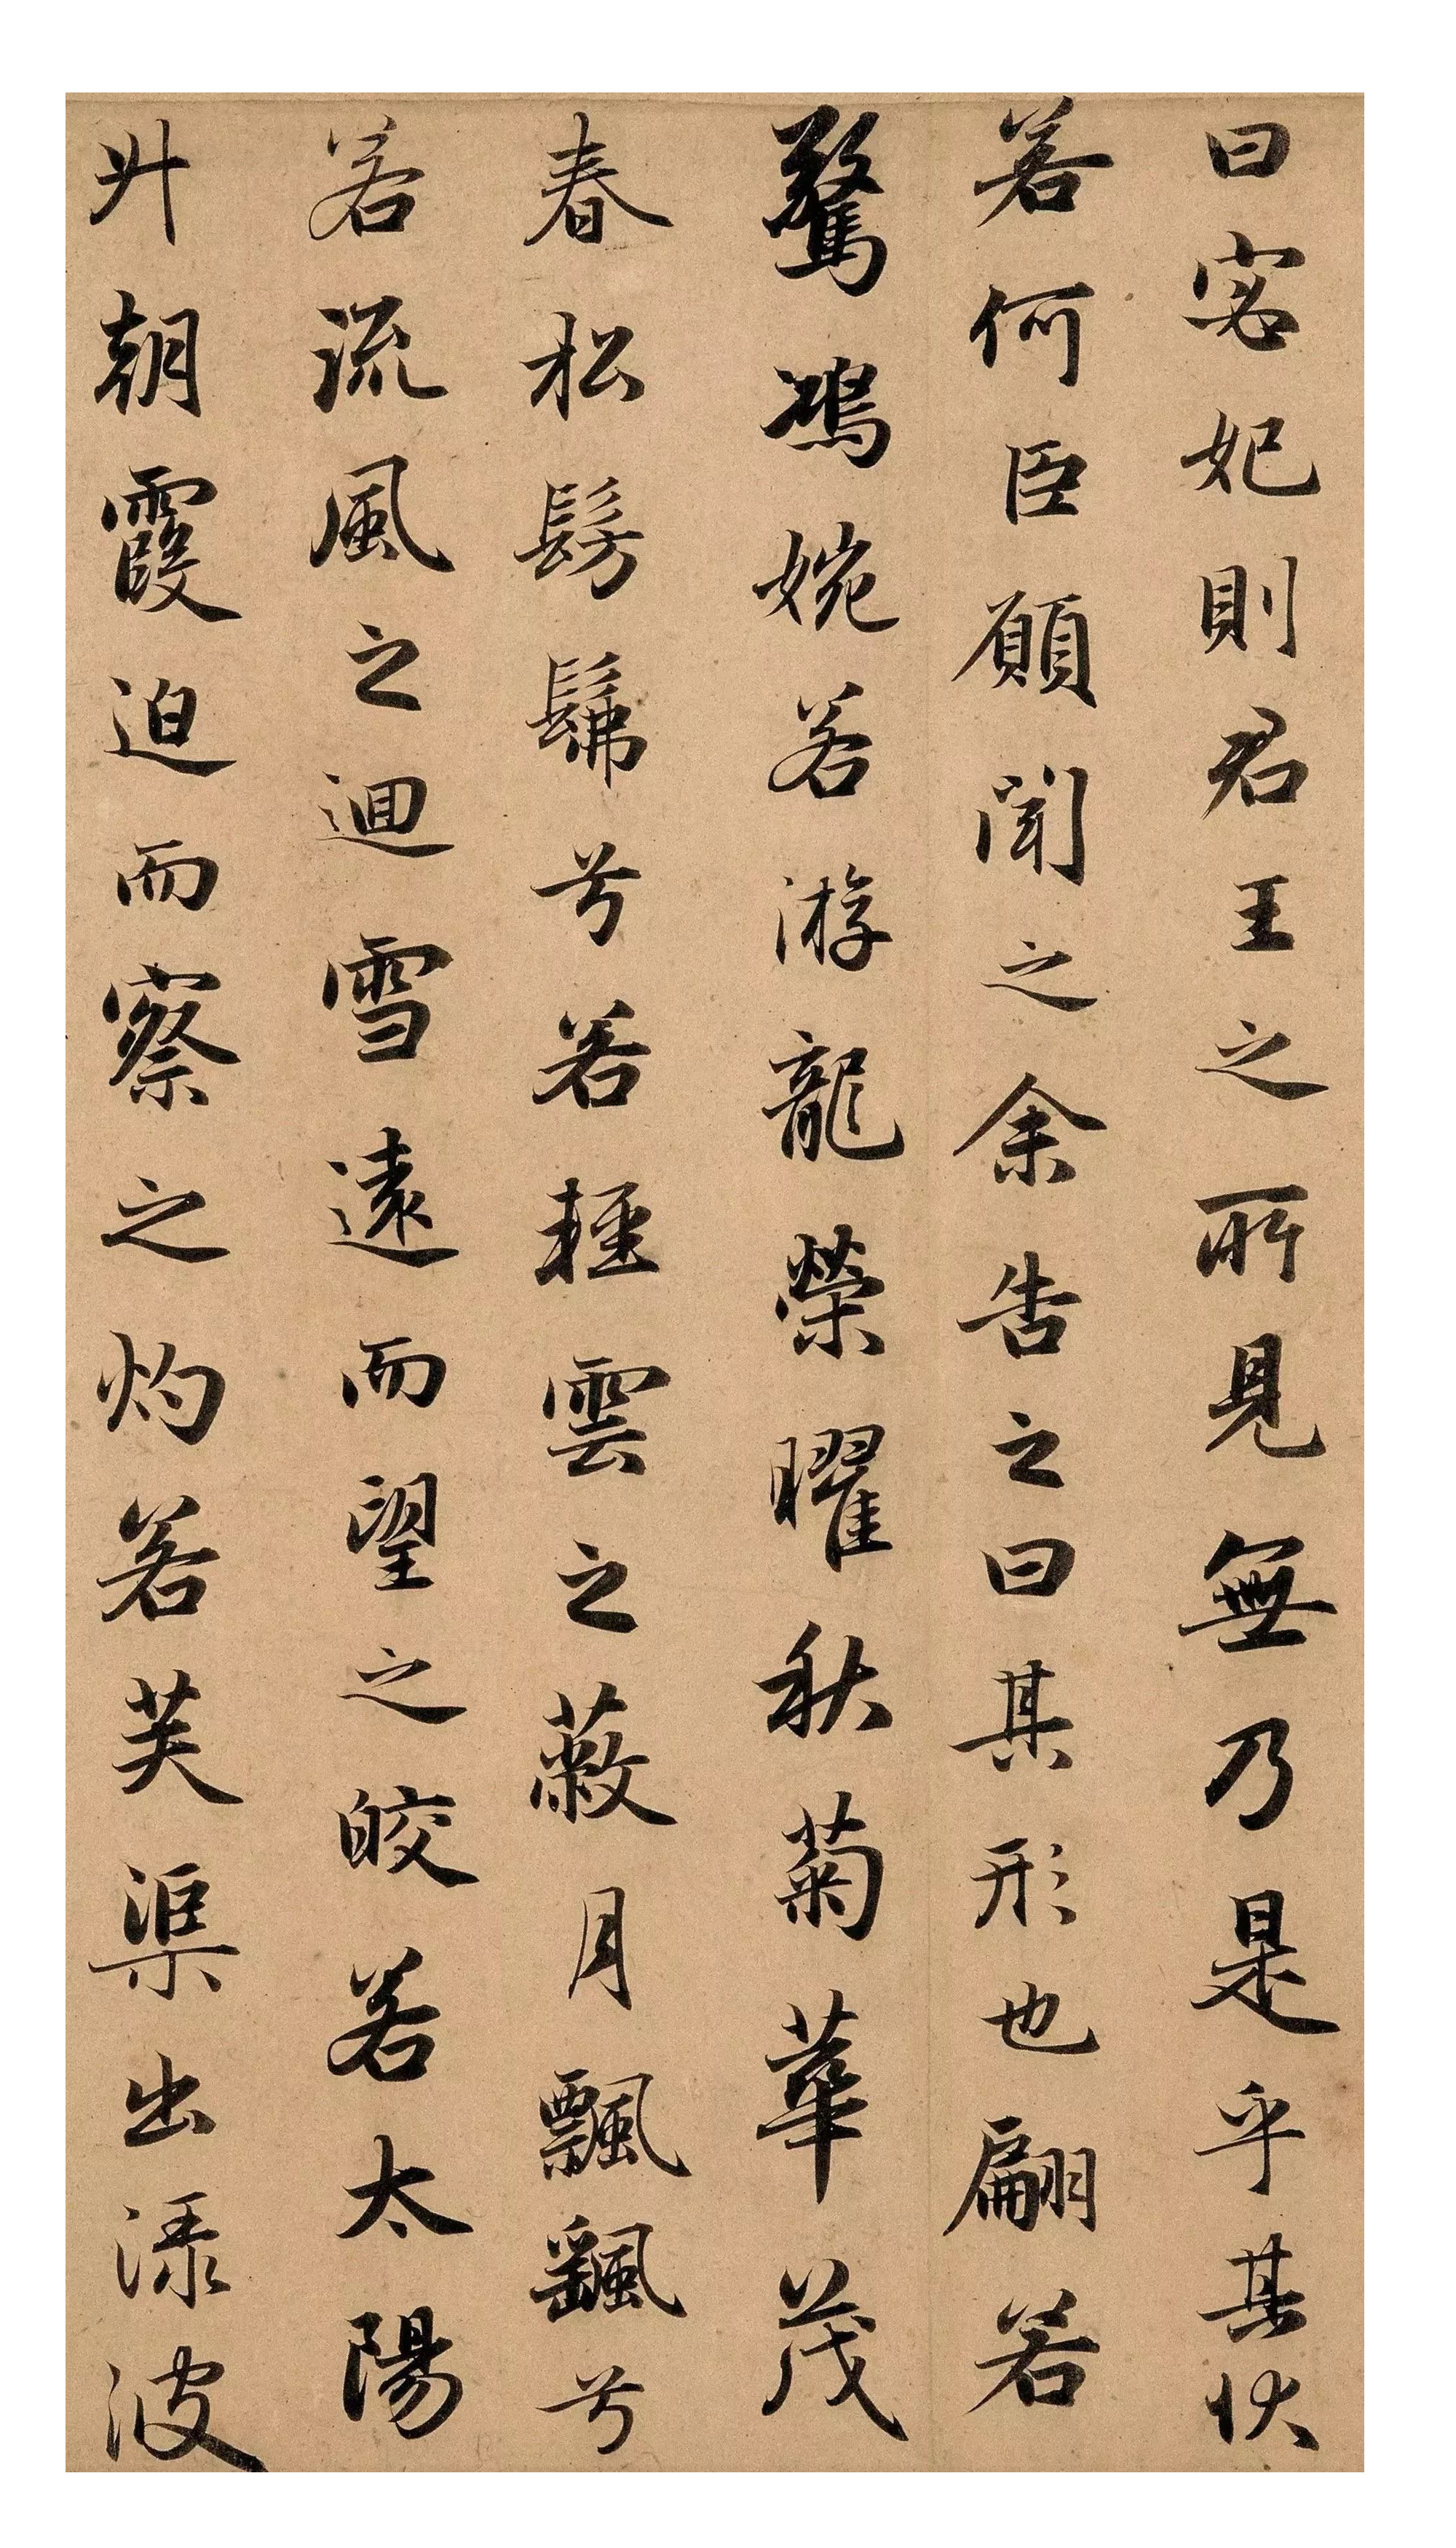 曰宓妃則君王之所見無乃是乎其狀
若何臣願聞之余告之曰其形也翩若
驚鴻婉若游龍榮曜秋菊華茂
春松髣髴兮若輕雲之蔽月飄飖兮
若流風之迴雪遠而望之皎若太陽
升朝霞迫而察之灼若芙渠出淥波